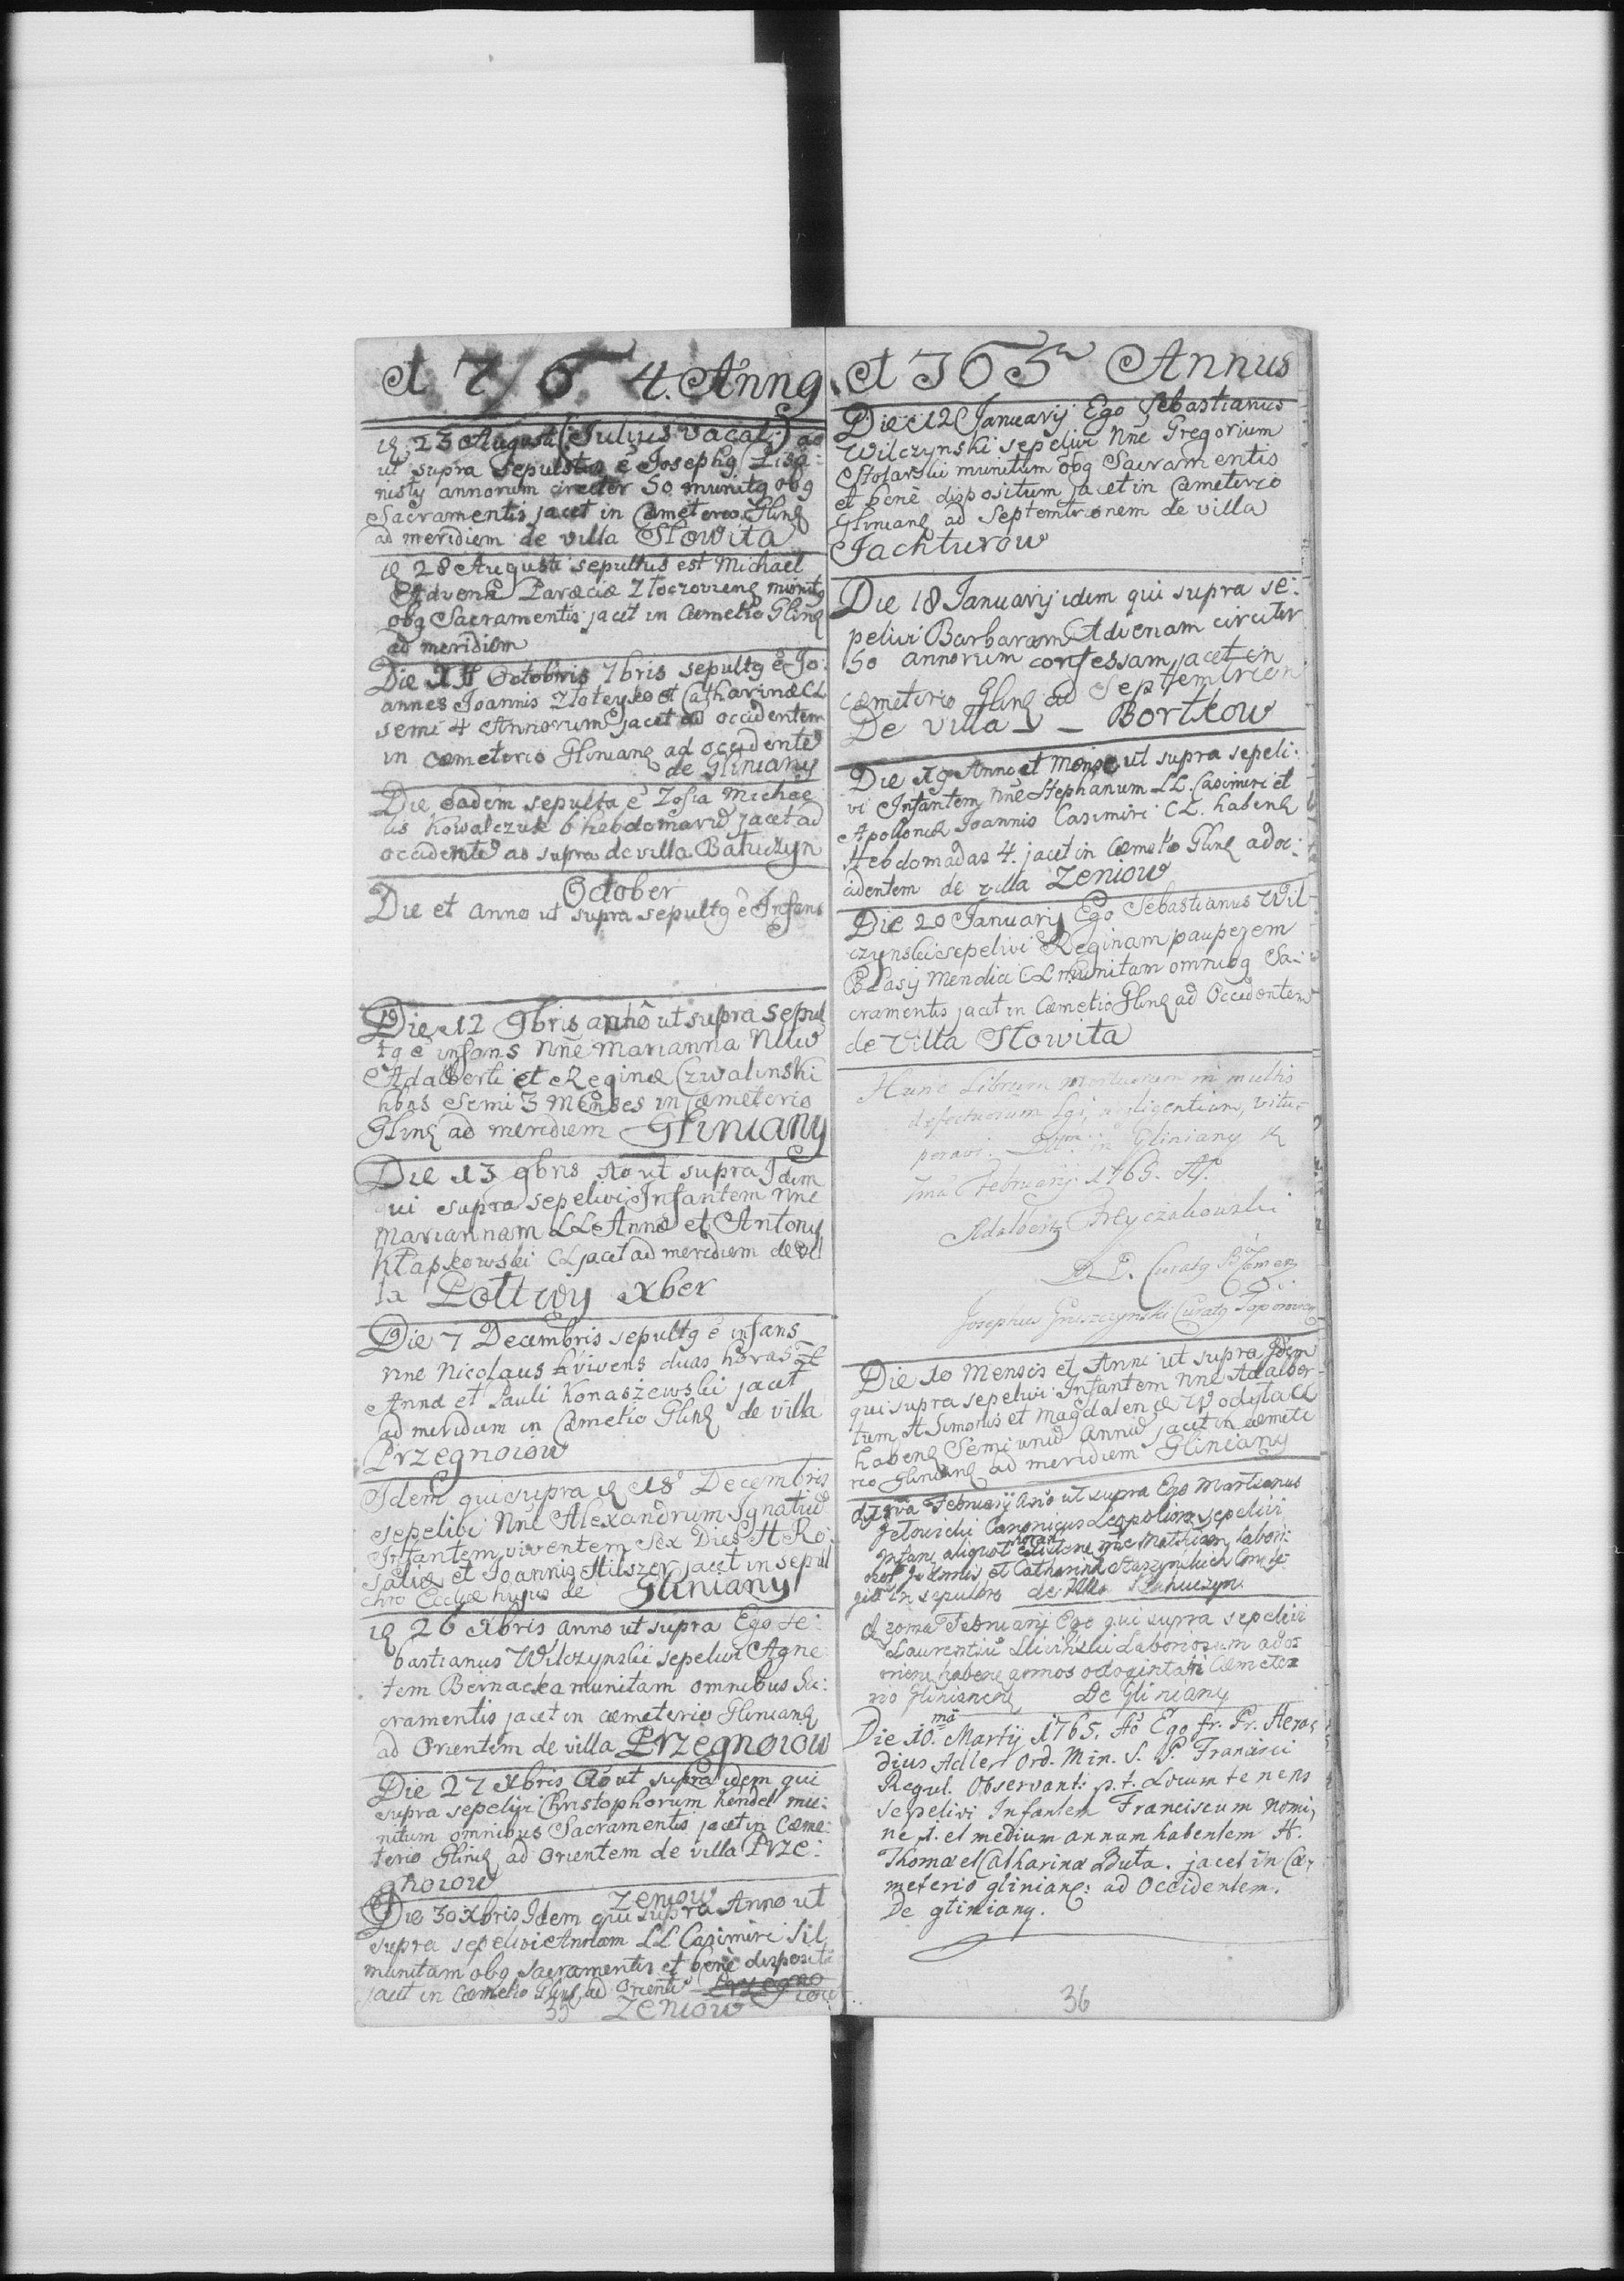 1764. Annq
23 Augusti (Julius vacat) ao
ut supra sepultus ē Josephq Lisa:
nisty annorum circiter 50 munitq obq
Sacramentis jacet in Cæmeterio Glinę
ad meridiem de villa Słowita
28 Augusti sepultus est Michael
Advena Paræciæ Złoczovienę munitq
obq Sacramentis jacet in Cæmetio Glinę
ad meridiem
Die Octobris 7bris sepultq ē Jo:
annes Joannis Złoteyko et Catharinæ CL
semi 4 Annorum jacet ad occidentem
in cæmeterio Glinianę ad occidentē
de Gliniany
Die eadem sepulta ē Zofia Michae
lis Kowalczuk 6 hebdomarū jacet ad
occidentē as supra de villa Bałuczyn
October
Die et anno ut supra sepultq ē Infans
Die 12 9bris anno ut supra sepul
tq ē infans nñe Marianna
Adalberti et Reginæ Czwalinski
hbns semi 3 Menses in Cæmeterio
Glinę ad meridiem Gliniany
Die 13 9bris Ao ut supra Idem
qui supra sepelivi Infantem nñe
Mariannam LL Annæ et Antony
Kłapkowski CL jacet ad meridiem de vil
la Połtwy Xber
Die 7 Decembris sepultq ē infans
nñe Nicolaus vivens duas horas
Annæ et Pauli Konaszewski jacet
ad meridiem in Cæmetio Glinę de villa
Przegnoiow
Idem qui supra 18° Decembris
sepelivi Nñe Alexandrum Ignatiū
Infantem viventem Sex Dies H Ro:
saliæ et Joannis Hilszer jacet in sepul
chro Eccliæ hujus de Gliniany
26 Xbris anno ut supra Ego Se:
bastianus Wilczynski sepelivi Agne:
tem Beinacka munitam omnibus Sa:
cramentis jacet in cæmeterio Glinianę
ad Orientem de villa Przegnoiow
Die 27 Xbris Ao ut supra idem qui
supra sepelivi Christophorum Kendel mu:
nitum omnibus Sacramentis jacet in Cæme:
terio Glinię ad Orientem de villa Prze:
gnoiow
Zeniow
Die 30 Xbris Idem qui supra Anno ut
supra sepelivi Annam LL Casimiri Sil
munitam obq sacramentis et bene disposita
jacet in Cæmetio Glinę ad Orientē Przegno
iow
35 Zeniow
1765 Annus
Die 12 Januarij Ego Sebastianus
Wilczynski sepelivi Nñe Gregorium
Stolarski munitum obq Sacramentis
et benè dispositum jacet in Cæmeterio
Glinianę ad Septemtrionem de villa
Jachturow
Die 18 Januarij idem qui supra se:
pelivi Barbaram Advenam circiter
50 annorum confessam jacet in
cæmeterio Glinę ad Septemtrion
De villa _ Bortkow
Die 19 Anno et Mense ut supra sepeli:
vi Infantem nñe Stephanum LL. Casimiri et
Apolloniæ Joannis Casimiri CL. habenę
Hebdomadas 4. jacet in Cæmetio Glinę ad oc:
cidentem de villa Zeniow
Die 20 Januarij Ego Sebastianus Wil
czynski sepelivi Reginam pauperem
Blasij Mendici CL munitam omniby Sa:
cramentis jacet in Cæmetio Glinę ad Occidentem
de Villa Słowita
Hunc Librum mortuorum in multis
defectuosum legi, negligentiam, vitu-
peravi. Dttm. in Gliniany
7ma Februarij 1765. A°.
Adalbertq Freyczakowski
D. P. Curatq
Josephus Gruszczynski Curatq Toporoviens
Die 10 Mensis et Anni ut supra Idem
qui supra sepelivi Infantem nñe Adalber-
tum H Simonis et Magdalenæ Wodyla CL
habenę Semi uniq Anniq jacet in cæmete
rio Glinianę ad meridiem Gliniany
Februarij Anō ut supra Ego Martianus
Jelowicki Canonicus Leopolien sepelivi
Infanē aliquot horar nñe Mathiam Labori:
osor Joannis et Catharinæ Staszynskich
in sepulcro de Villa
Februarij Ego qui supra sepelivi
Laurentiū Laboriosum ad o:
rienē habenē annos octoginta in Cæmete:
rio Glinianenę De Gliniany
Die 10.mâ Martij 1765. A° Ego fr. Pr.
dius Adler Ord. Min. S. P. Francisci
Regul. Observanti: p.t. Locum tenens
sepelivi Infantem Franciscum Nomi,
ne 1. et medium annum habentem H.
Thomæ et Catharinæ Buta. jacet in Cæ,
meterio glinianę: ad Occidentem.
De gliniany.
36